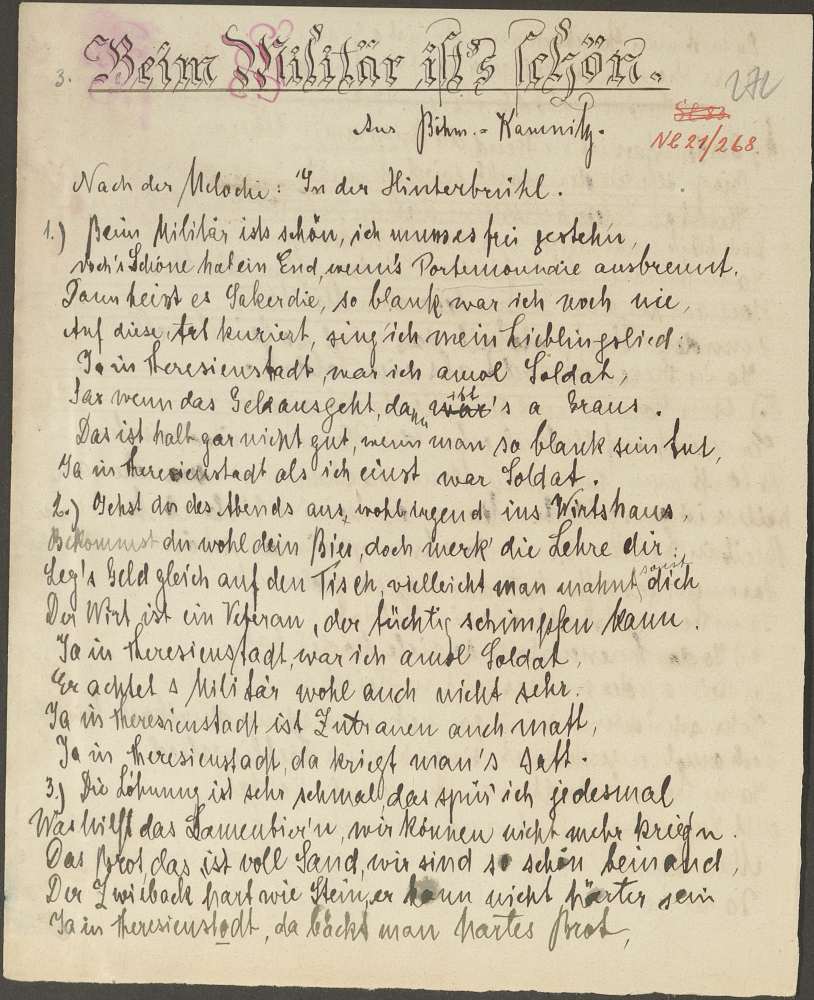 3. Beim Militär ist's schön.
272
Aus Böhm.-Kamnitz.
Nl 21/268.
Nach der Melodie: "In der Hinterbrühl.
1.) Beim Militär ists schön, ich muss es frei gestehn,
doch's Schöne hat ein End, wenn's Portemonnaie ausbrennt.
Dann heisst es Sakerdie, so blank war ich noch nie,
Auf diese Art kuriert, sing' ich mein Lieblingslied:
Ja in Theresienstadt, war ich amol Soldat,
Gar wenn das Geld ausgeht, da ist's a Graus.
Das ist halt gar nicht gut, wenn man so blank sein tut,
Ja in Theresienstadt als ich einst war Soldat.
2.) Gehst du des Abends aus, wohl irgend ins Wirtshaus,
Bekommst du wohl dein Bier, doch merk' die Lehre dir:
Leg's Geld gleich auf den Tisch, vielleicht man mahnt sonst dich
Der Wirt ist ein Veteran, der tüchtig schimpfen kann.
Ja in Theresienstadt, war ich amol Soldat,
Er achtet s Militär wohl auch nicht sehr.
Ja in Theresienstadt ist Zutrauen auch matt,
Ja in Theresienstadt, da kriegt man's satt.
3.) Die Löhnung ist sehr schmal, das spür' ich jedesmal
Was hilft das Lamentier'n, wir können nicht mehr krieg'n.
Das Brot das ist voll Sand, wir sind so schön beinand,
Der Zwieback hart wie Stein, er kann nicht härter sein
Ja in Theresienstadt, da bäckt man hartes Brot,